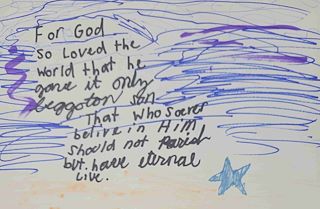 For God
So Loved the
World that he
gave it only
beggoton Son
That Who Soever
belive in Him
Should not Parish
but have eternal
Live.